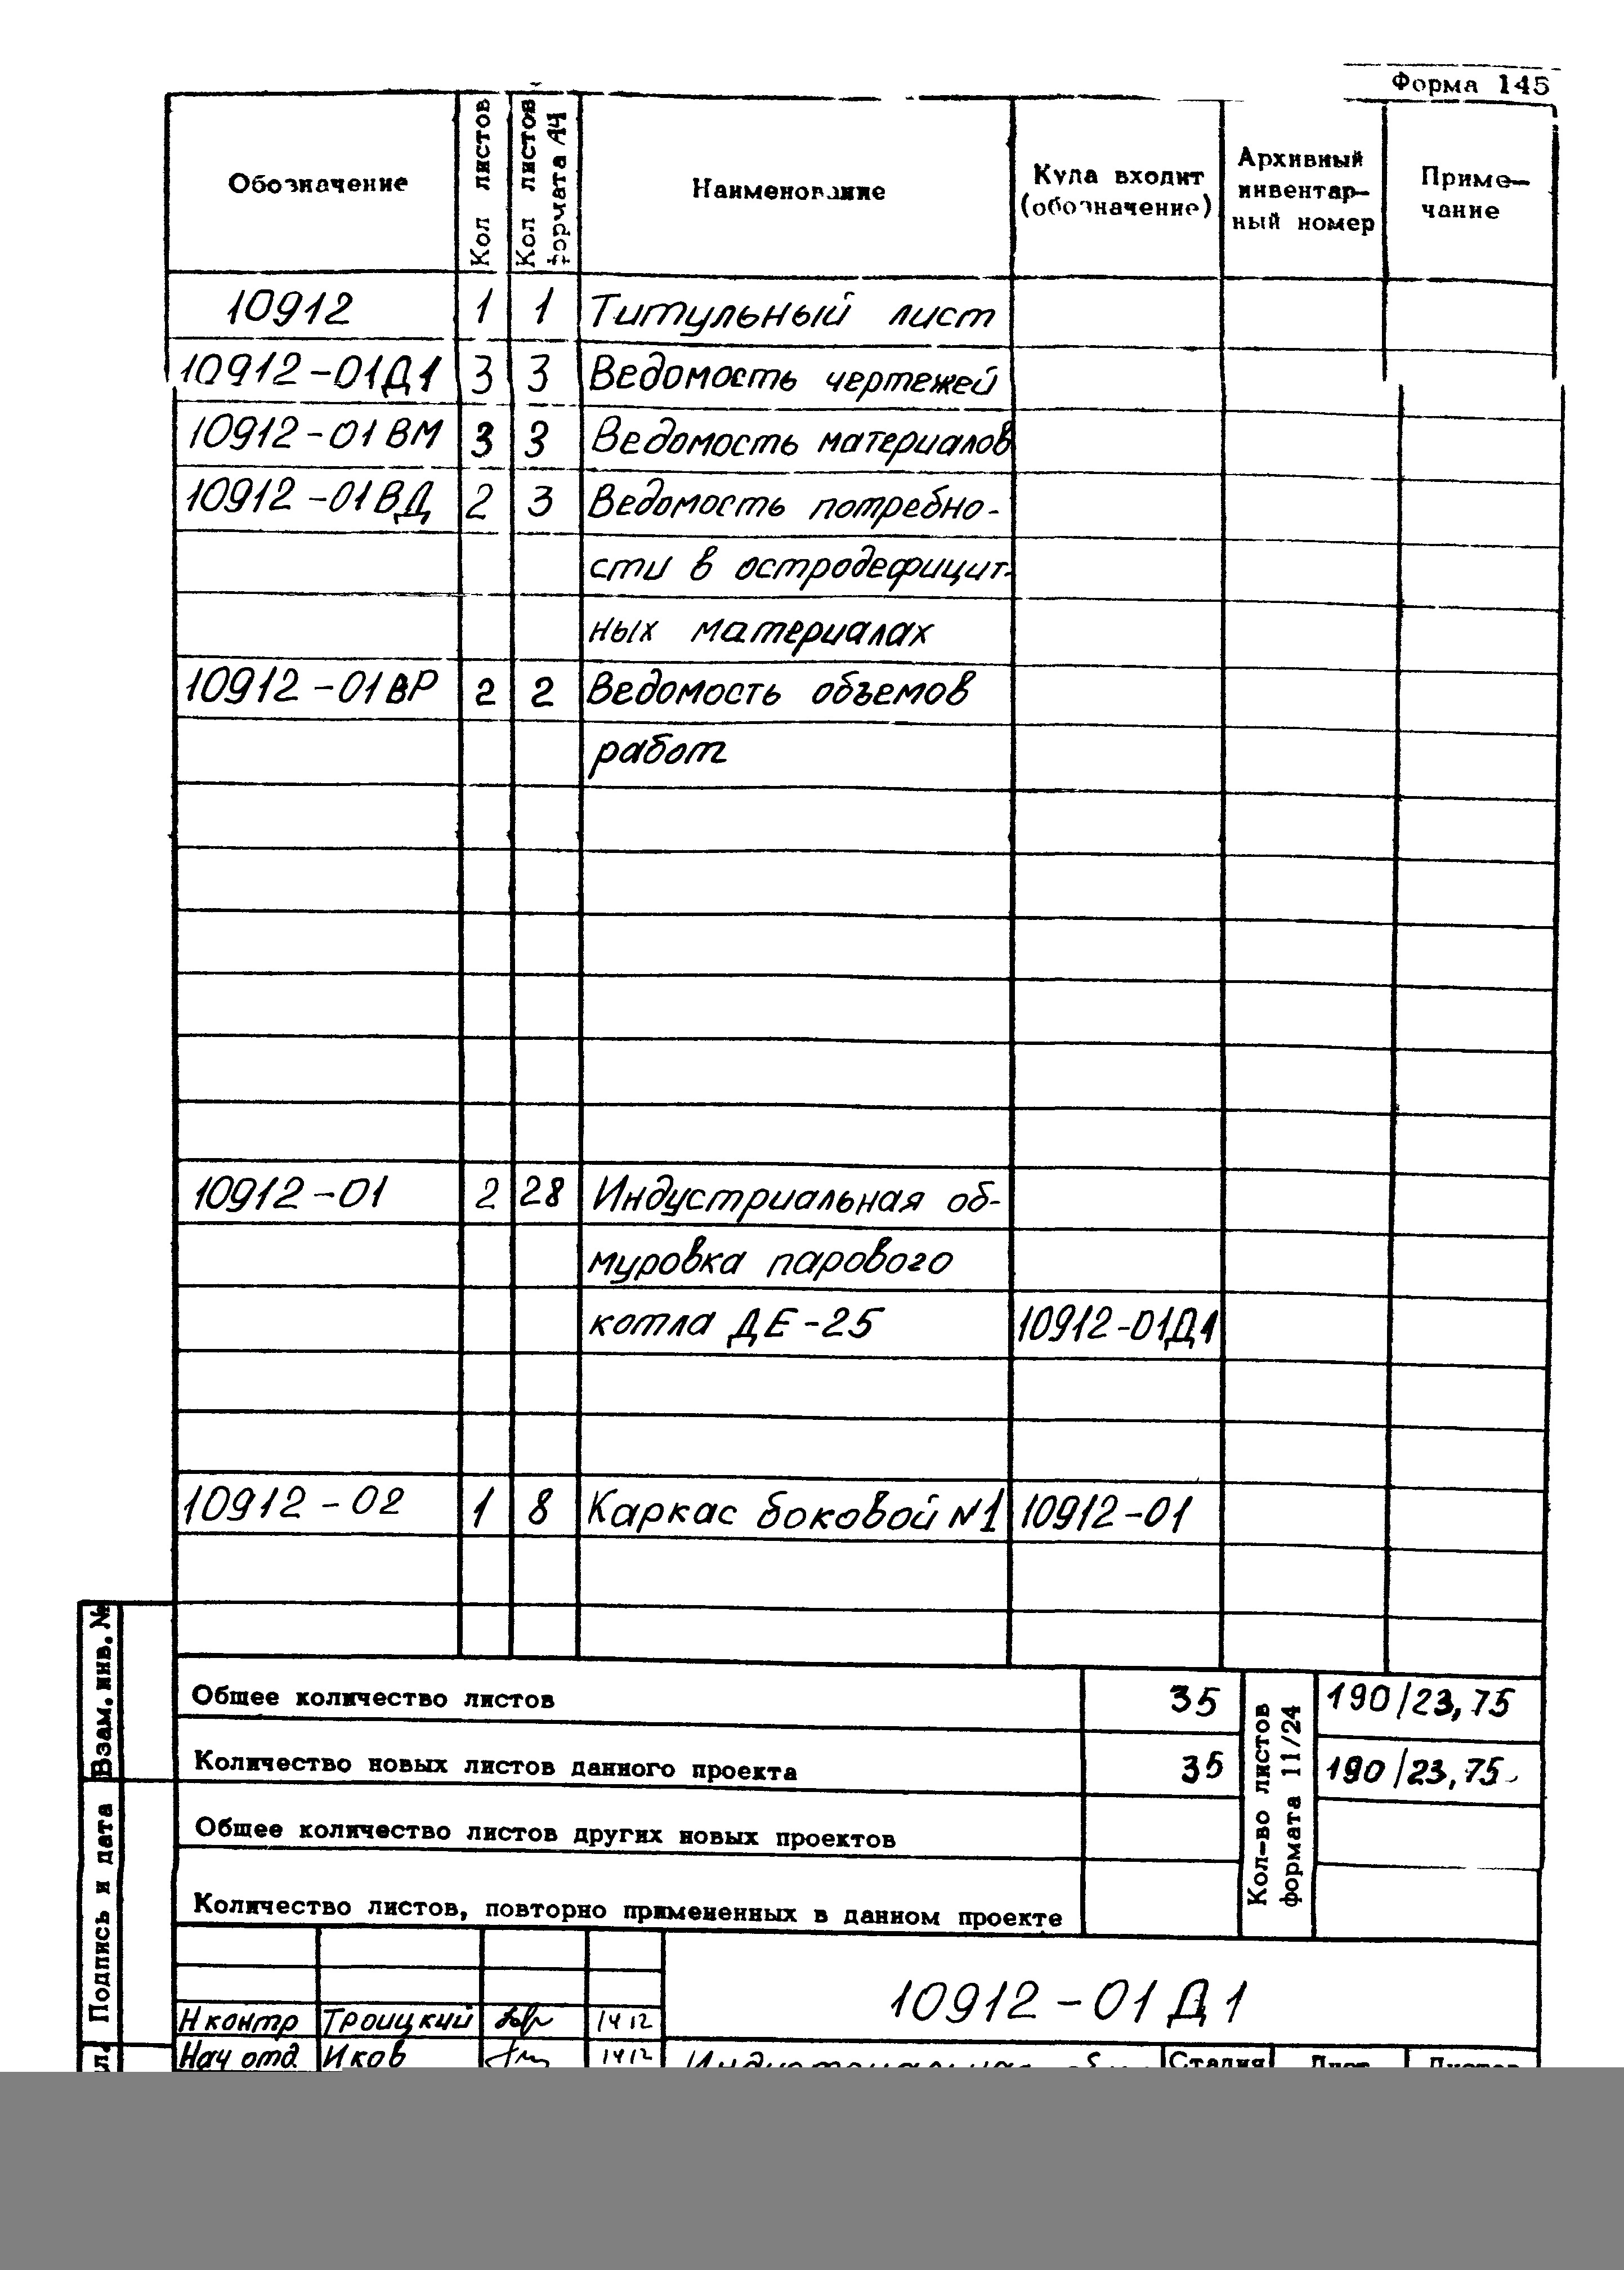 Форма 145
Обозначение
Кол листов
Кол листов формата А4
Наименование
Куда входит (обозначение)
Архивный инвентарный номер
Приме—чание
10912 1 1 Титульный лист
10912-01Д1 3 3 Ведомость чертежей
10912-01ВМ 3 3 Ведомость материалов
10912-01ВД 2 3 Ведомость потребно-
сти в остродефицит-
ных материалах
10912-01ВР 2 2 Ведомость объемов
работ
10912-01 2 28 Индустриальная об-
муровка парового
котла ДЕ-25 10912-01Д1
10912-02 1 8 Каркас боковой N1 10912-01
Общее количество листов 35 190/23,75
Количество новых листов данного проекта 35 190/23,75
Общее количество листов других новых проектов
Количество листов, повторно примененных в данном проекте
Кол-во листов
формата 11/24
Взам. инв. №
Подпись и дата
10912-01Д1
Н контр Троицкий 14 12
Нач отд Иков 14 12
Стадия Лист Листов